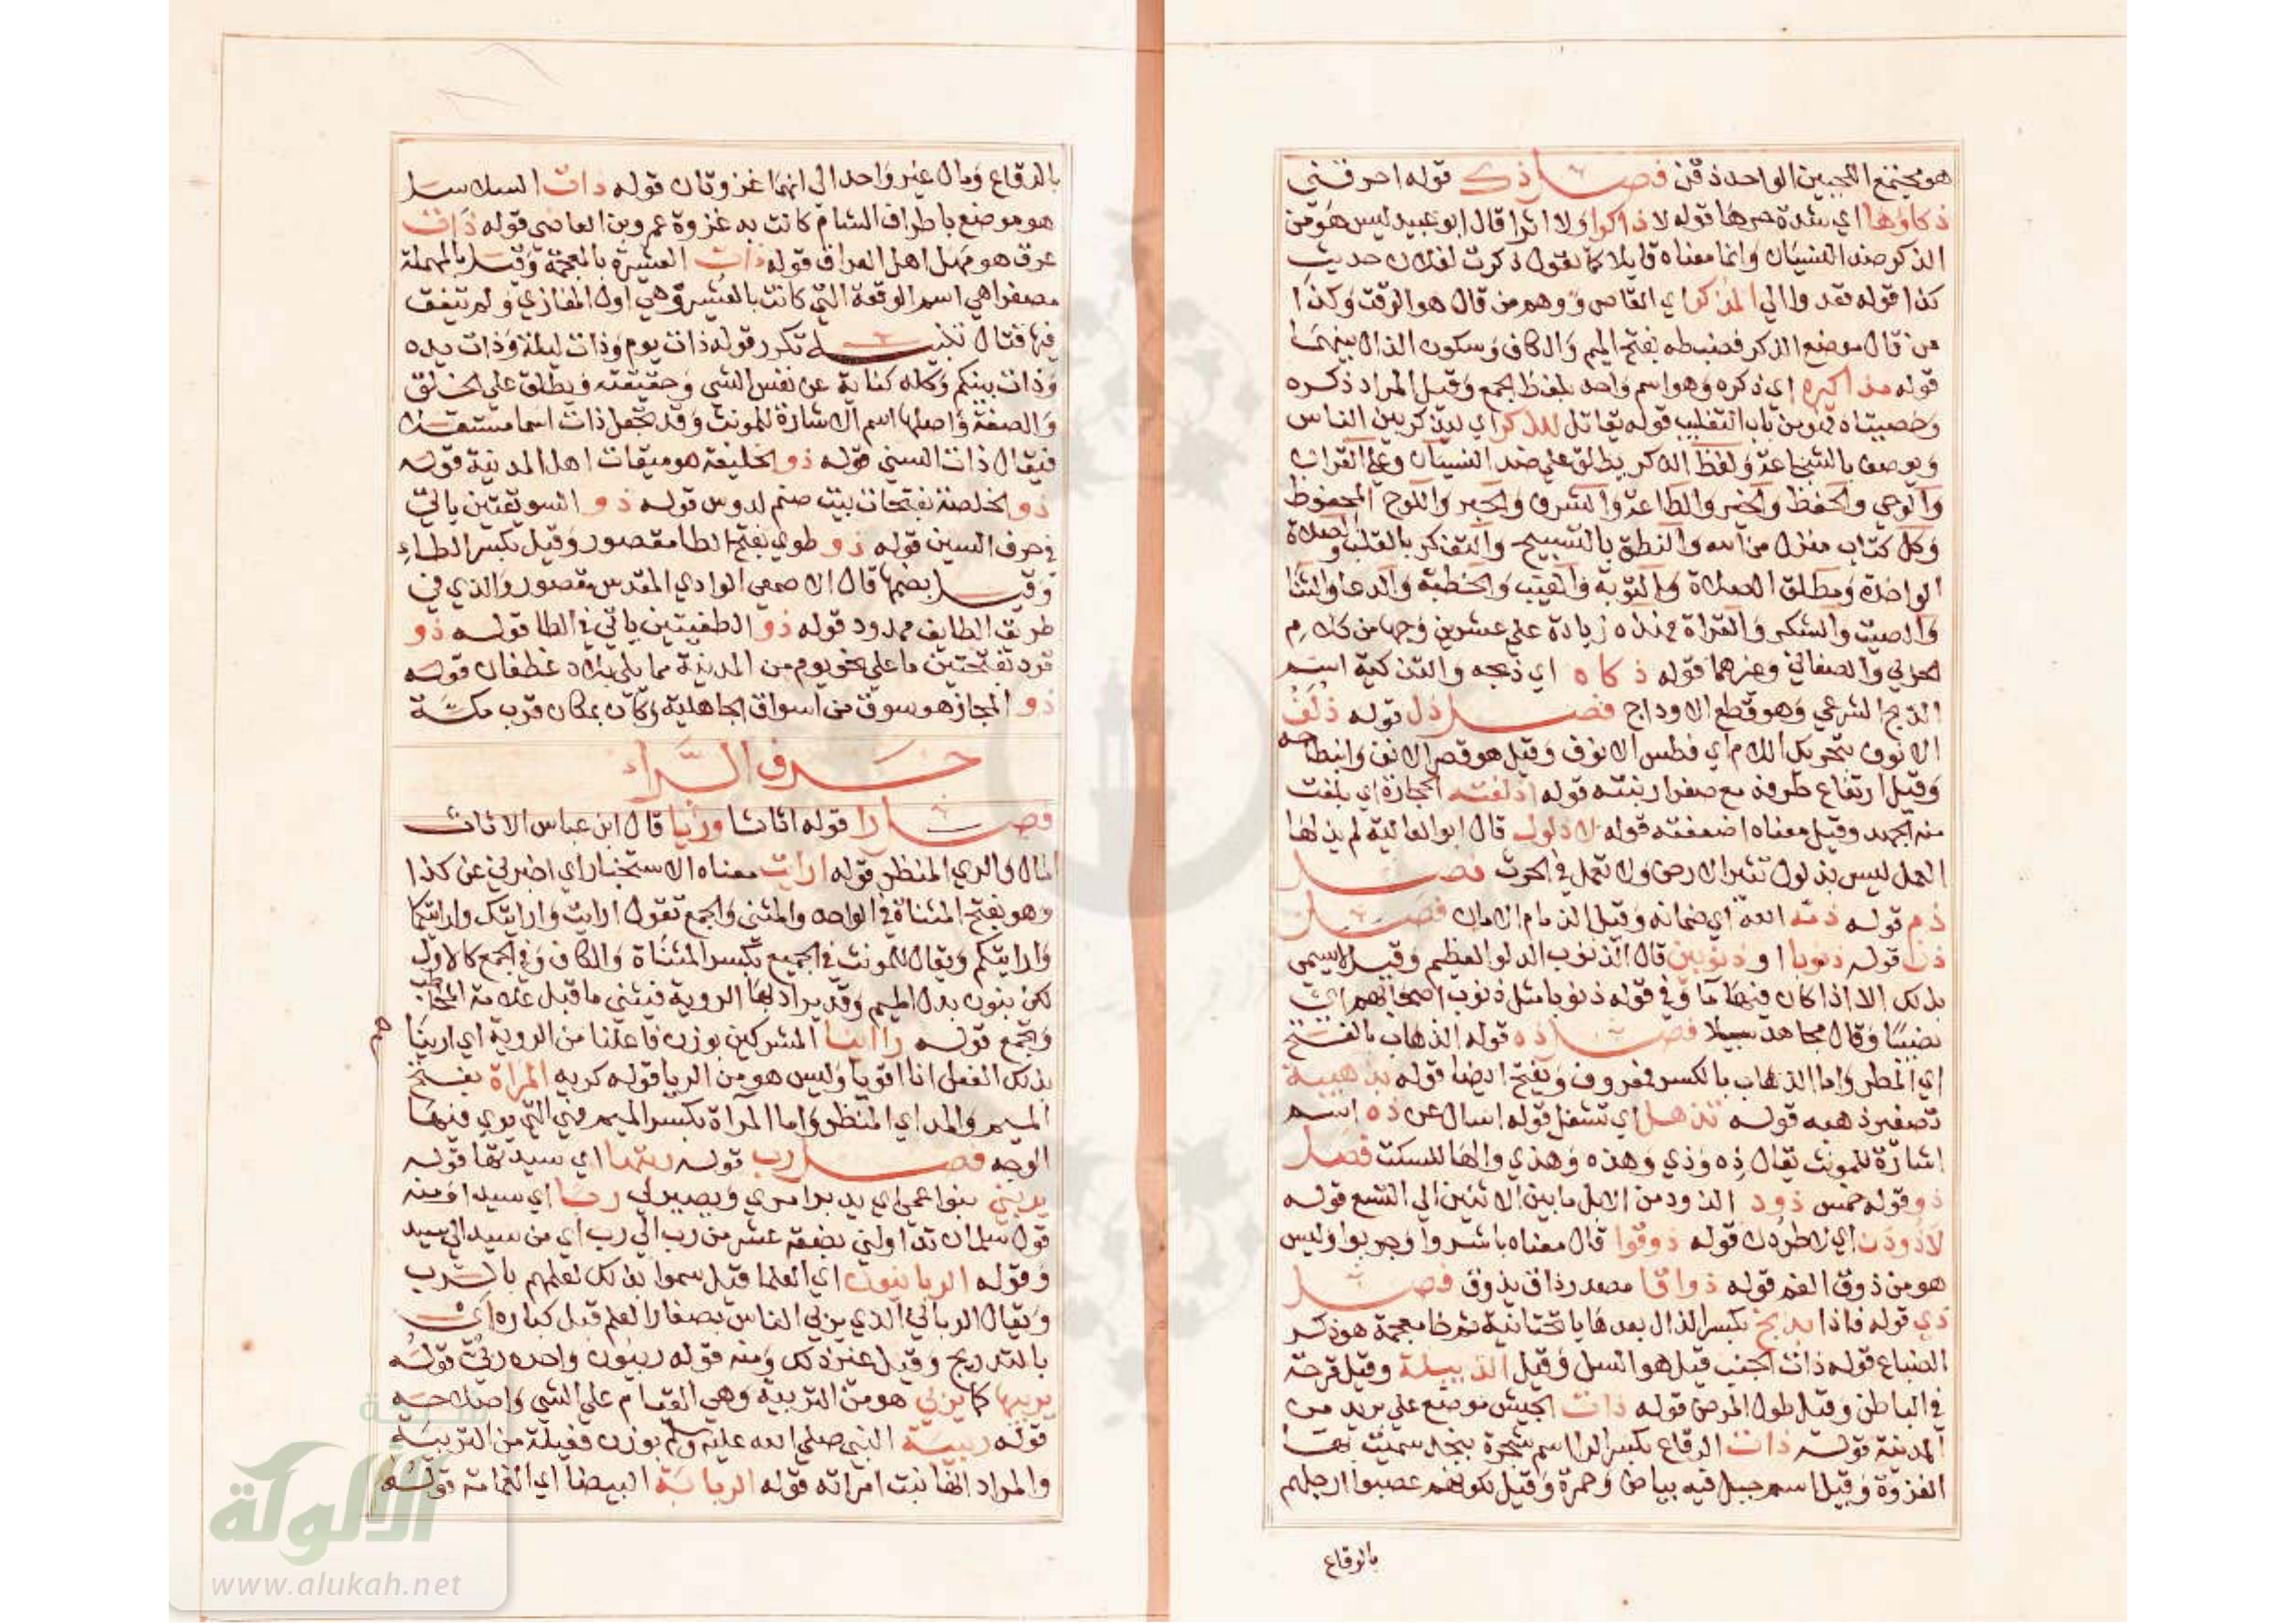 هو مجتمع اللحيين الواحد ذقن فصل ذك قوله احرقني
ذكاوها اي شدة حرها قوله لا ذاكرا ولا اثرا قال ابو عبيد ليس هو من
الذكر ضد النسيان وانما معناه قايلا كما تقول ذكرت لفلان حديث
كذا قوله فقد والي المذكر اي القاص ووهم من قال هو الوقت وكذا
من قال موضع الذكر فضبطه بفتح الميم والكاف وسكون الذال بينهما
قوله مذاكيره اي ذكره وهو اسم واحد بلفظ الجمع وقيل المراد ذكره
وخصيتاه فهو من باب التغليب قوله يقاتل للذكر اي ليذكر بين الناس
ويوصف بالشجاعة ولفظ الذكر يطلق علي ضد النسيان وعلي القران
والوحي والحفظ والخبر والطاعة والشرف والخبر واللوح المحفوظ
وكل كتاب منزل من الله والنطق بالتسبيح والتفكر بالقلب والصلاة
الواحدة ومطلق الصلاة والتوبة والغيب والخطبة والدعا والثنا
والصيت والشكر والقراة فهذه زيادة علي عشرين وجها من كلام
الحربي والصغاني وغيرهما قوله ذكاه اي ذبحه والتذكية اسم
الذبح الشرعي وهو قطع الاوداج فصل ذل قوله ذلف
الانوف بتحريك اللام اي فطس الانوف وقيل هو قصر الانف وانبطاحه
وقيل ارتفاع طرفه مع صغر ارنبته قوله اذلقته الحجارة اي بلغت
منه الجهد وقيل معناه اضعفته قوله لا ذلول قال ابو العالية لم يذلها
العمل ليس بذلول تثير الارض ولا تعمل في الحرث فصل
ذم قوله ذمة الله اي ضمانه وقيل الذمام الامان فصل
ذن قوله ذنوبا او ذنوبين قال الذنوب الدلو العظيم وقيل لا يسمي
بذلك الا اذا كان فيها ما وفي قوله ذنوبا مثل ذنوب اصحابهم اي
نصيبا وقال مجاهد سبيلا فصل ذه قوله الذهاب بالفتح
اي المطر واما الذهاب بالكسر فمعروف ويفتح ايضا قوله بذهيبة
تصغير ذهبه قوله تذهل اي تشغل قوله اسال عن ذه اسم
اشارة للمونث يقال ذه وذي وهذه وهذي والها للسكت فصل
ذو قوله خمس ذود الذود من الابل ما بين الاثنين الي التسع قوله
لاذودن اي لاطردن قوله ذوقوا قال معناه باشروا وجربوا وليس
هو من ذوق الفم قوله ذواقا مصدر ذاق يذوق فصل
ذي قوله فاذا بذيخ بكسر الذال بعدها يا تحتانية ثم خا معجمة هو ذكر
الضباع قوله ذات الجنب قيل هو السل وقيل الذبيلة وقيل قرحة
في الباطن وقيل طول المرض قوله ذات الجيش موضع علي بريد من
المدينة قوله ذات الرقاع بكسر الرا اسم شجرة بنجد سميت بها
الغزوة وقيل اسم جبل فيه بياض وحمرة وقيل لكونهم عصبوا ارجلهم
بالرقاع
بالرقاع وقال غير واحد الي انهما غزوتان قوله ذات السلاسل
هو موضع باطراف الشام كانت به غزوة عمرو بن العاصي قوله ذات
عرق هو مهل اهل العراق قوله ذات العشيرة بالمعجمة وقيل بالمهملة
مصغرا هي اسم الوقعة التي كانت بالعشيرة وهي اول المغازي ولم يتفق
فيها قتال تنبيه تكرر قوله ذات يوم وذات ليلة وذات يده
وذات بينكم وكله كناية عن نفس الشي وحقيقته ويطلق علي الخلق
والصفة واصلها اسم الاشارة للمونث وقد تجعل ذات اسما مستقلا
فيقال ذات الشي قوله ذو الحليفة هو ميقات اهل المدينة قوله
ذو الخلصة بفتحات بيت صنم لدوس قوله ذو السويقتين ياتي
في حرف السين قوله ذو طوي بفتح الطا مقصور وقيل بكسر الطاء
وقيل بضمها قال الاصمعي الوادي المقدس مقصور والذي في
طريق الطايف ممدود قوله ذو الطفيتين ياتي في الطا قوله ذو
قرد بفتحتين ما علي نحو يوم من المدينة مما يلي بلاد غطفان قوله
ذو المجاز هو سوق من اسواق الجاهلية وكان بمكان قرب مكة
حرف الراء
فصل را قوله اثاثا ورئيا قال ابن عباس الاثاث
المال والري المنظر قوله ارايت معناه الاستخبار اي اخبرني عن كذا
وهو بفتح المثناة في الواحد والمثني والجمع تقول ارايت وارايتك وارايتكما
وارايتكم ويقال للمونث في الجميع بكسر المثناة والكاف وفي الجمع كالاول
لكن بنون بدل الميم وقد يراد بها الروية فيثني ما قبل علامة المخاطب
ويجمع قوله راءينا المشركين بوزن فاعلنا من الروية اي اريناهم
بذلك الفعل انا اقويا وليس هو من الريا قوله كريه المراة بفتح
الميم والمد اي المنظر واما المرآة بكسر الميم فهي التي يري فيها
الوجه فصل رب قوله ربتها اي سيدتها قوله
يربني بنوا عمي اي يدبر امري ويصير لي ربا اي سيدا ومنه
قول سلمان تداولني بضعة عشر من رب الي رب اي من سيد الي سيد
وقوله الربانيون اي العلما قيل سموا بذلك لعلمهم بالرب
ويقال الرباني الذي يربي الناس بصغار العلم قبل كباره اي
بالتدريج وقيل غير ذلك ومنه قوله ربيون واحده ربي قوله
يربيها كما يربي هو من التربية وهي القيام علي الشي واصلاحه
قوله ربيبة النبي صلي الله عليه وسلم بوزن فعيلة من التربية
والمراد انها بنت امراته قوله الربابة البيضا اي الغمامة قوله
الألوكة
www.alukah.net